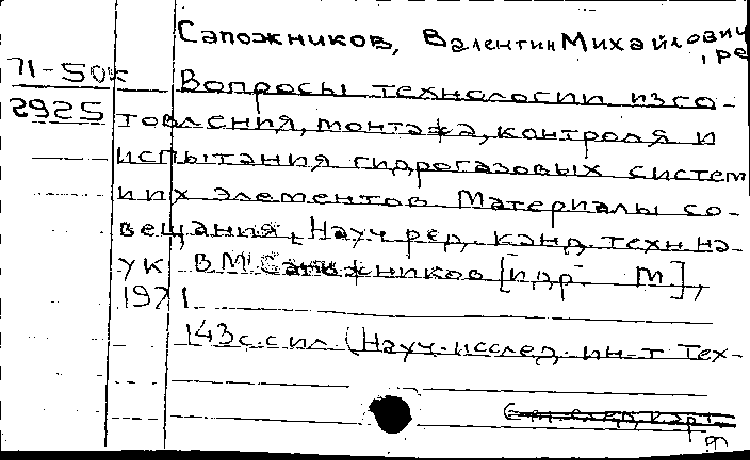 Сапожников, Валентин Михайлович
, ре
71-50к Вопросы технологии изго-
2925 товления, монтажа, контроля и
испытания гидрогазовых систем
и их элементов Материалы со-
вещания, Науч ред. канд. техн на-
ук В М Сапожников [и др. М.],
1971
143 с. с ил (Науч.-исслед. ин-т тех-